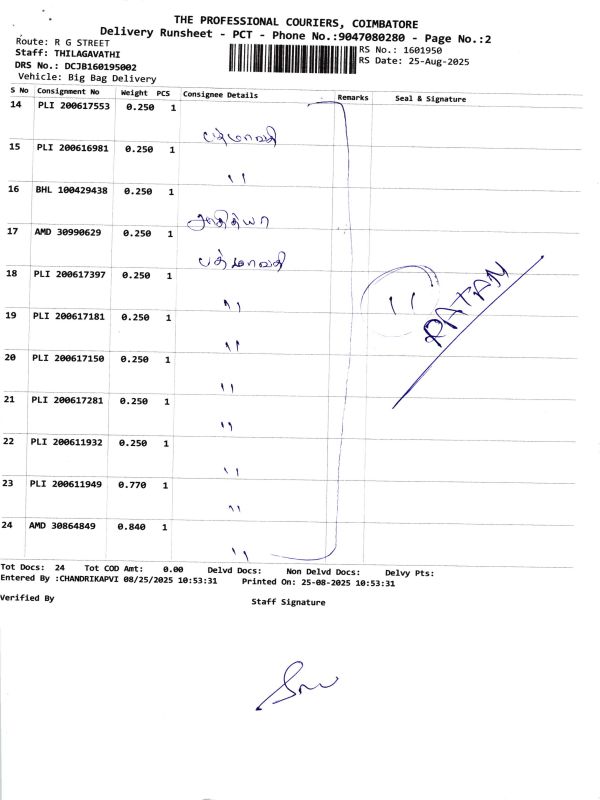 THE PROFESSIONAL COURIERS, COIMBATORE
Delivery Runsheet - PCT - Phone No.:9047080280 - Page No.:2
Route: R G STREET
Staff: THILAGAVATHI
DRS No.: DCJB160195002
Vehicle: Big Bag Delivery
RS No.: 1601950
RS Date: 25-Aug-2025
S No Consignment No Weight PCS Consignee Details Remarks Seal & Signature
14 PLI 200617553 0.250 1
பத்மாவதி
15 PLI 200616981 0.250 1
"
16 BHL 100429438 0.250 1
ஆதித்யா
17 AMD 30990629 0.250 1
பத்மாவதி
18 PLI 200617397 0.250 1
"
19 PLI 200617181 0.250 1
"
20 PLI 200617150 0.250 1
"
21 PLI 200617281 0.250 1
"
22 PLI 200611932 0.250 1
"
23 PLI 200611949 0.770 1
"
24 AMD 30864849 0.840 1
"
"
RATAN
Tot Docs: 24 Tot COD Amt: 0.00 Delvd Docs: Non Delvd Docs: Delvy Pts:
Entered By :CHANDRIKAPVI 08/25/2025 10:53:31 Printed On: 25-08-2025 10:53:31
Verified By
Staff Signature